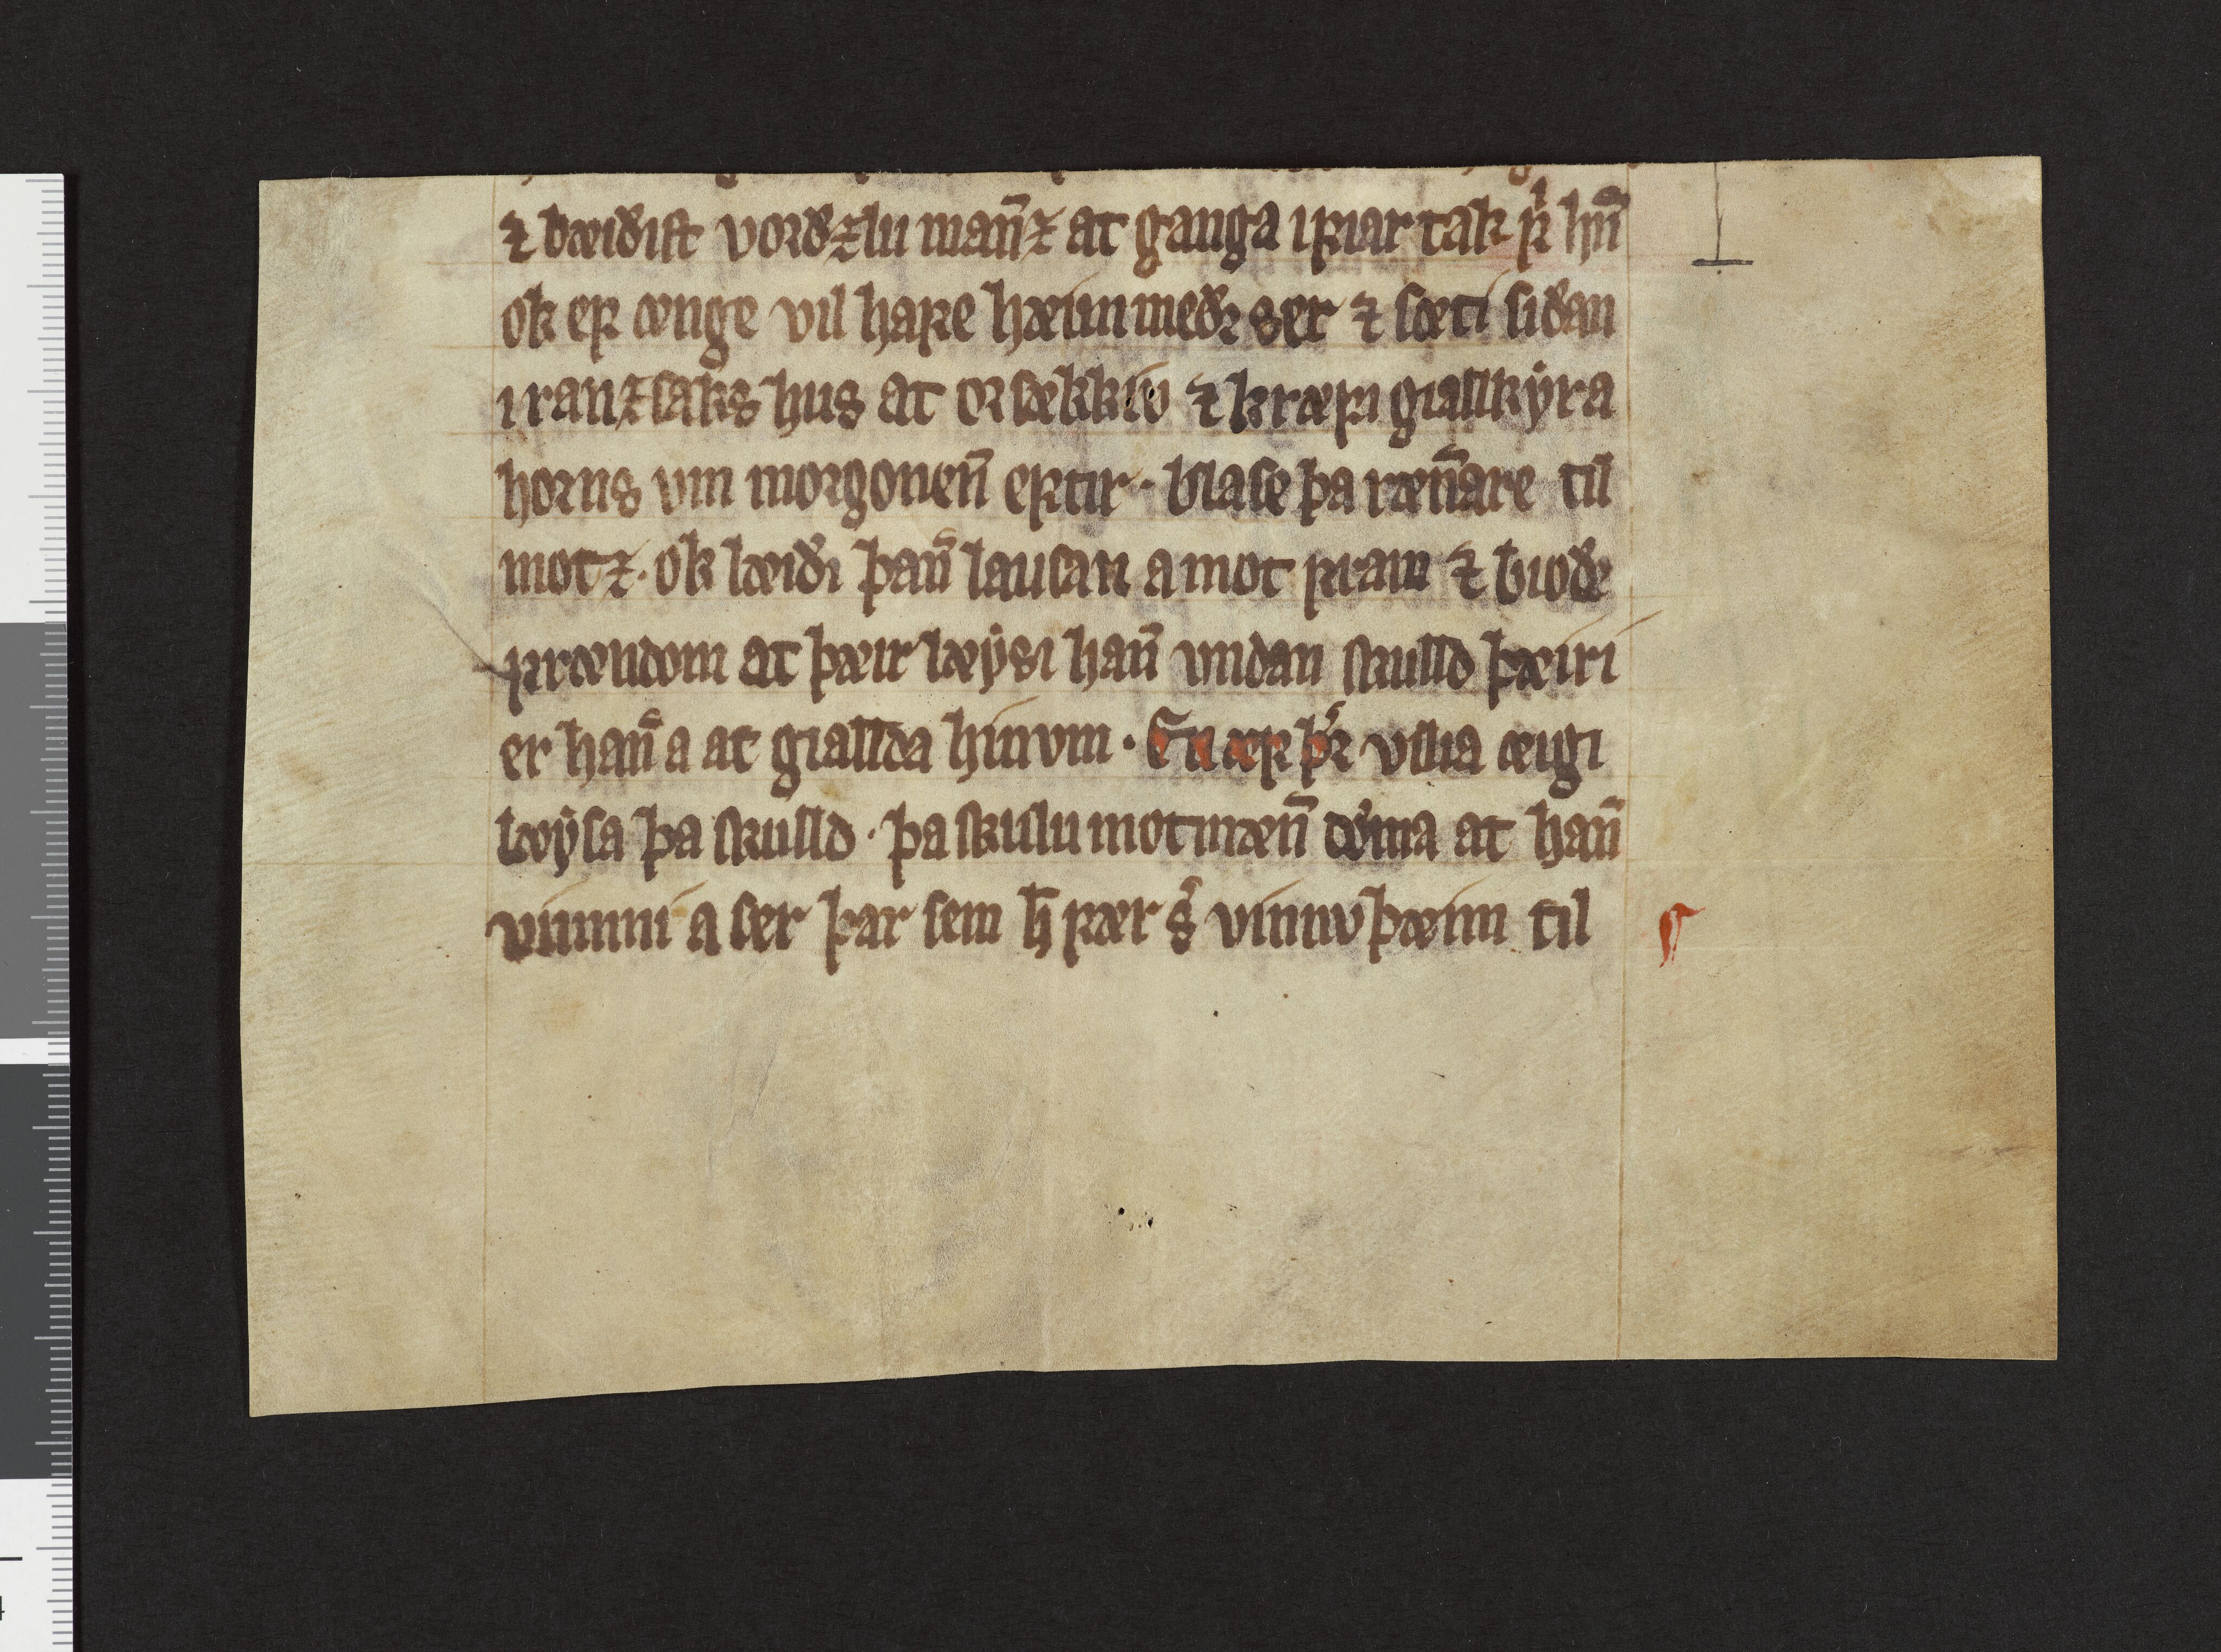 ⁊ bæiðiſt vorðꝫlu man̄ꝫ at ganga i ꝼiar tak ꝼͥ hn̄
ok eꝼ ænge vil haꝼe hæim meðr ser ⁊ ſæti ſiðan
i ranꝫſaks hus at orſekkiu ⁊ kræꝼi gialkyra
horns vm morgonen̄ eꝼtir · blaſe þa ræn̄are til
motꝫ · ok læiði þan̄ lauſan a mot ꝼram ⁊ bioðe
ꝼrændom at þæir læysi han̄ undan ſkulld þæiri
er han̄ a at giallda hinvm · En æꝼ þr̄ vilia æigi
løyſa þa ſkulld · þa ſkulu motmæn̄ dǿma at han̄
vinni a ſer þar ſem h̄ ꝼær s̄ vinnv þæim til